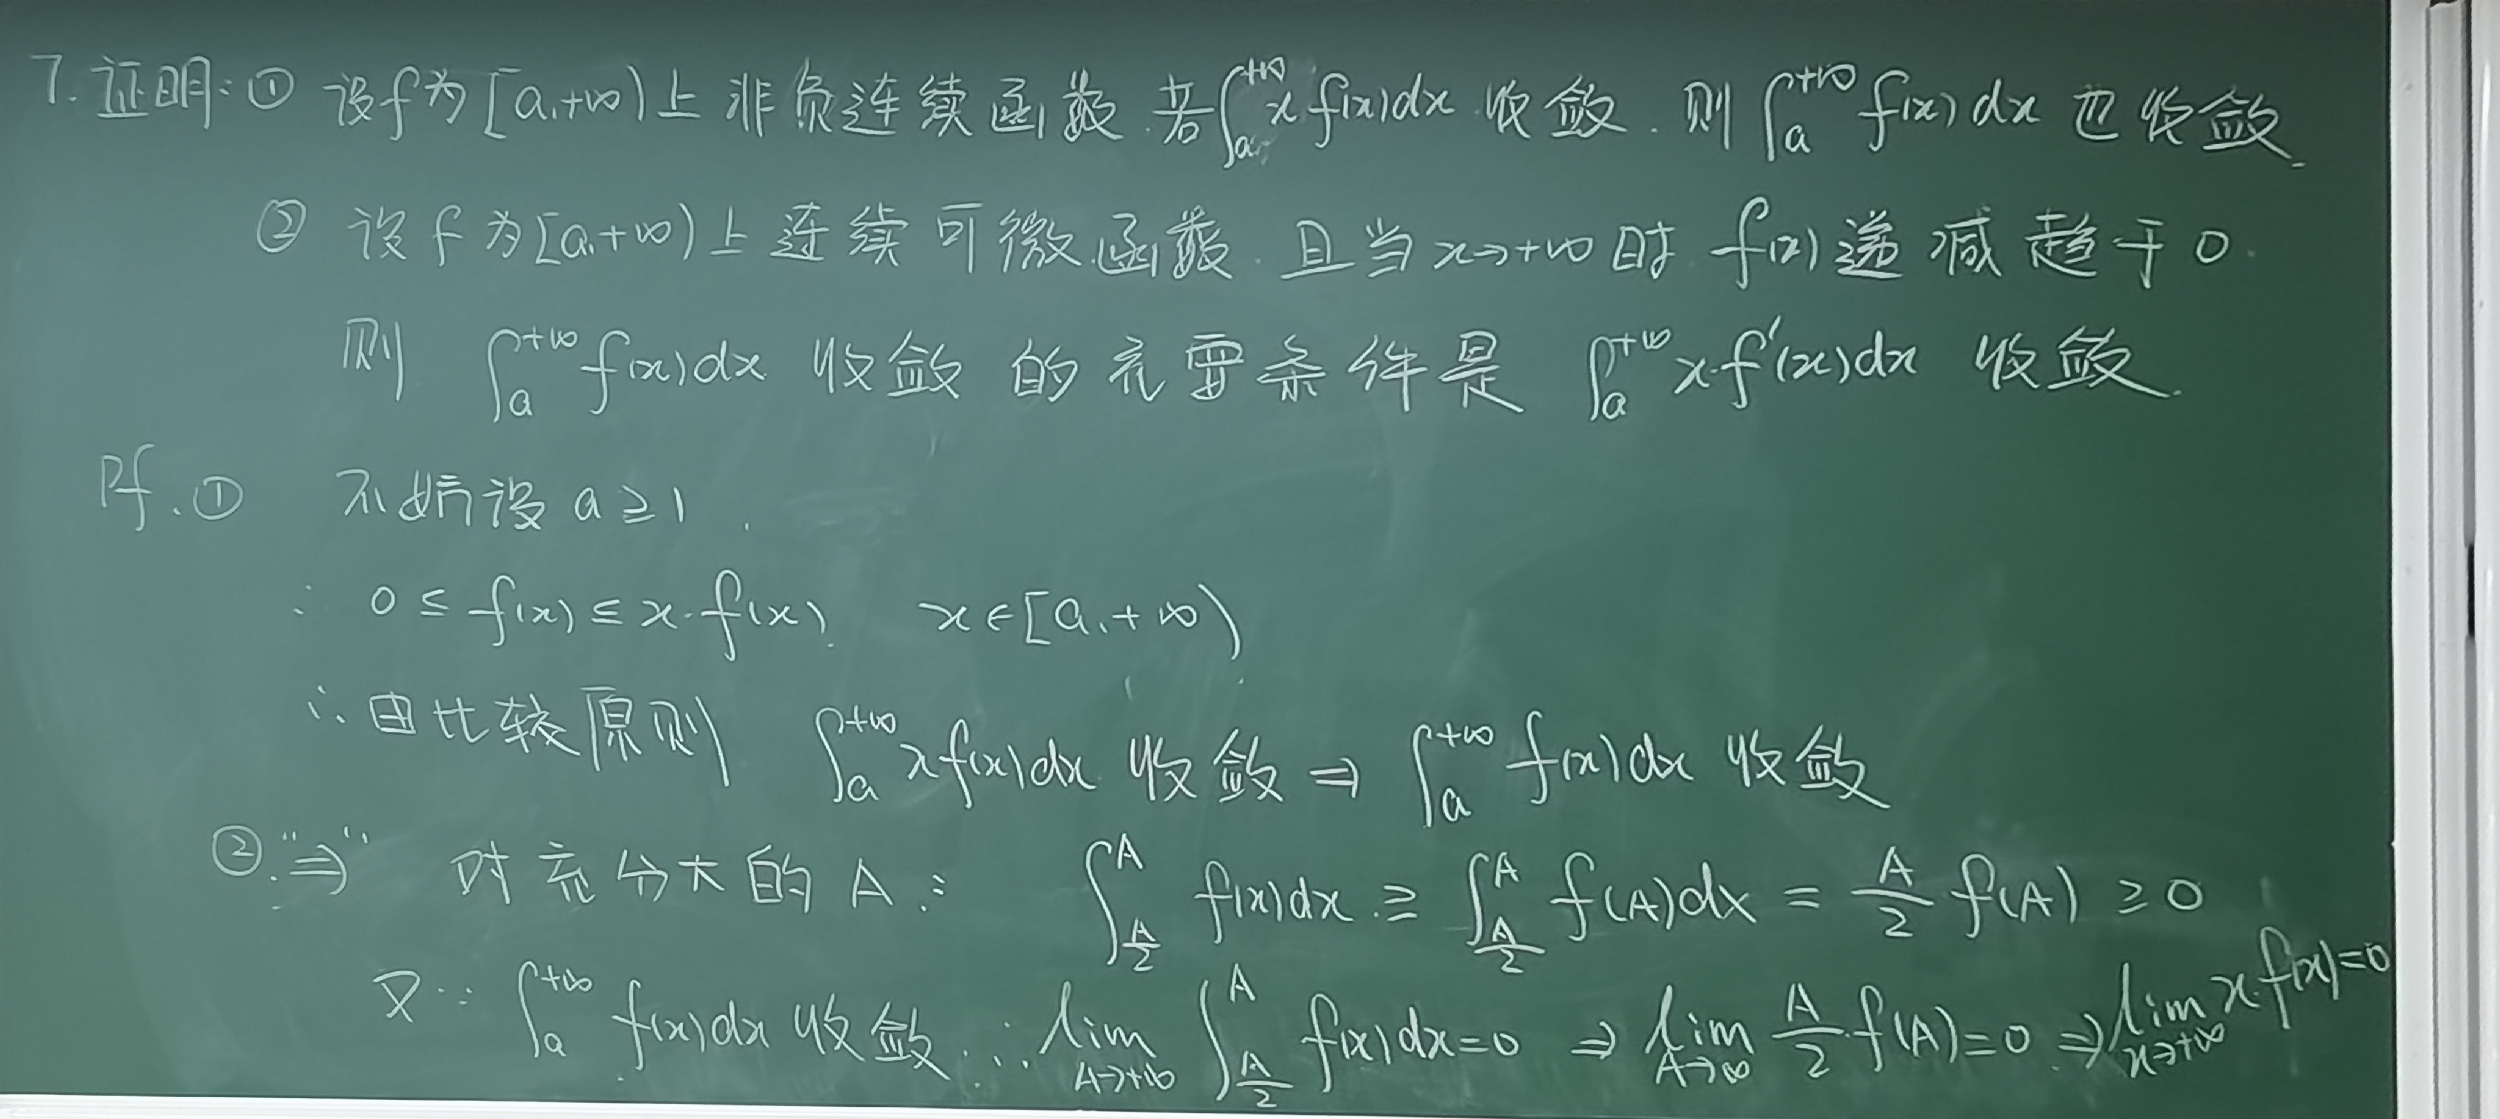 7. 证明: ① 设f为[a,+∞)上非负连续函数. 若∫_a^{+∞} x f(x)dx 收敛. 则 ∫_a^{+∞} f(x)dx 也收敛.
② 设f为[a,+∞)上连续可微函数. 且当x→+∞时 f(x)递减趋于0.
则 ∫_a^{+∞} f(x)dx 收敛的充要条件是 ∫_a^{+∞} x·f'(x)dx 收敛.
Pf. ① 不妨设 a≥1.
∵ 0≤f(x)≤x·f(x). x∈[a,+∞)
∴ 由比较原则 ∫_a^{+∞} xf(x)dx 收敛 ⇒ ∫_a^{+∞} f(x)dx 收敛
②. "⇒" 对充分大的A: ∫_{A/2}^A f(x)dx ≥ ∫_{A/2}^A f(A)dx = A/2 f(A) ≥0
又∵ ∫_a^{+∞} f(x)dx 收敛 ∴ lim_{A→+∞} ∫_{A/2}^A f(x)dx=0 ⇒ lim_{A→∞} A/2·f(A)=0 ⇒ lim_{x→+∞} x·f(x)=0